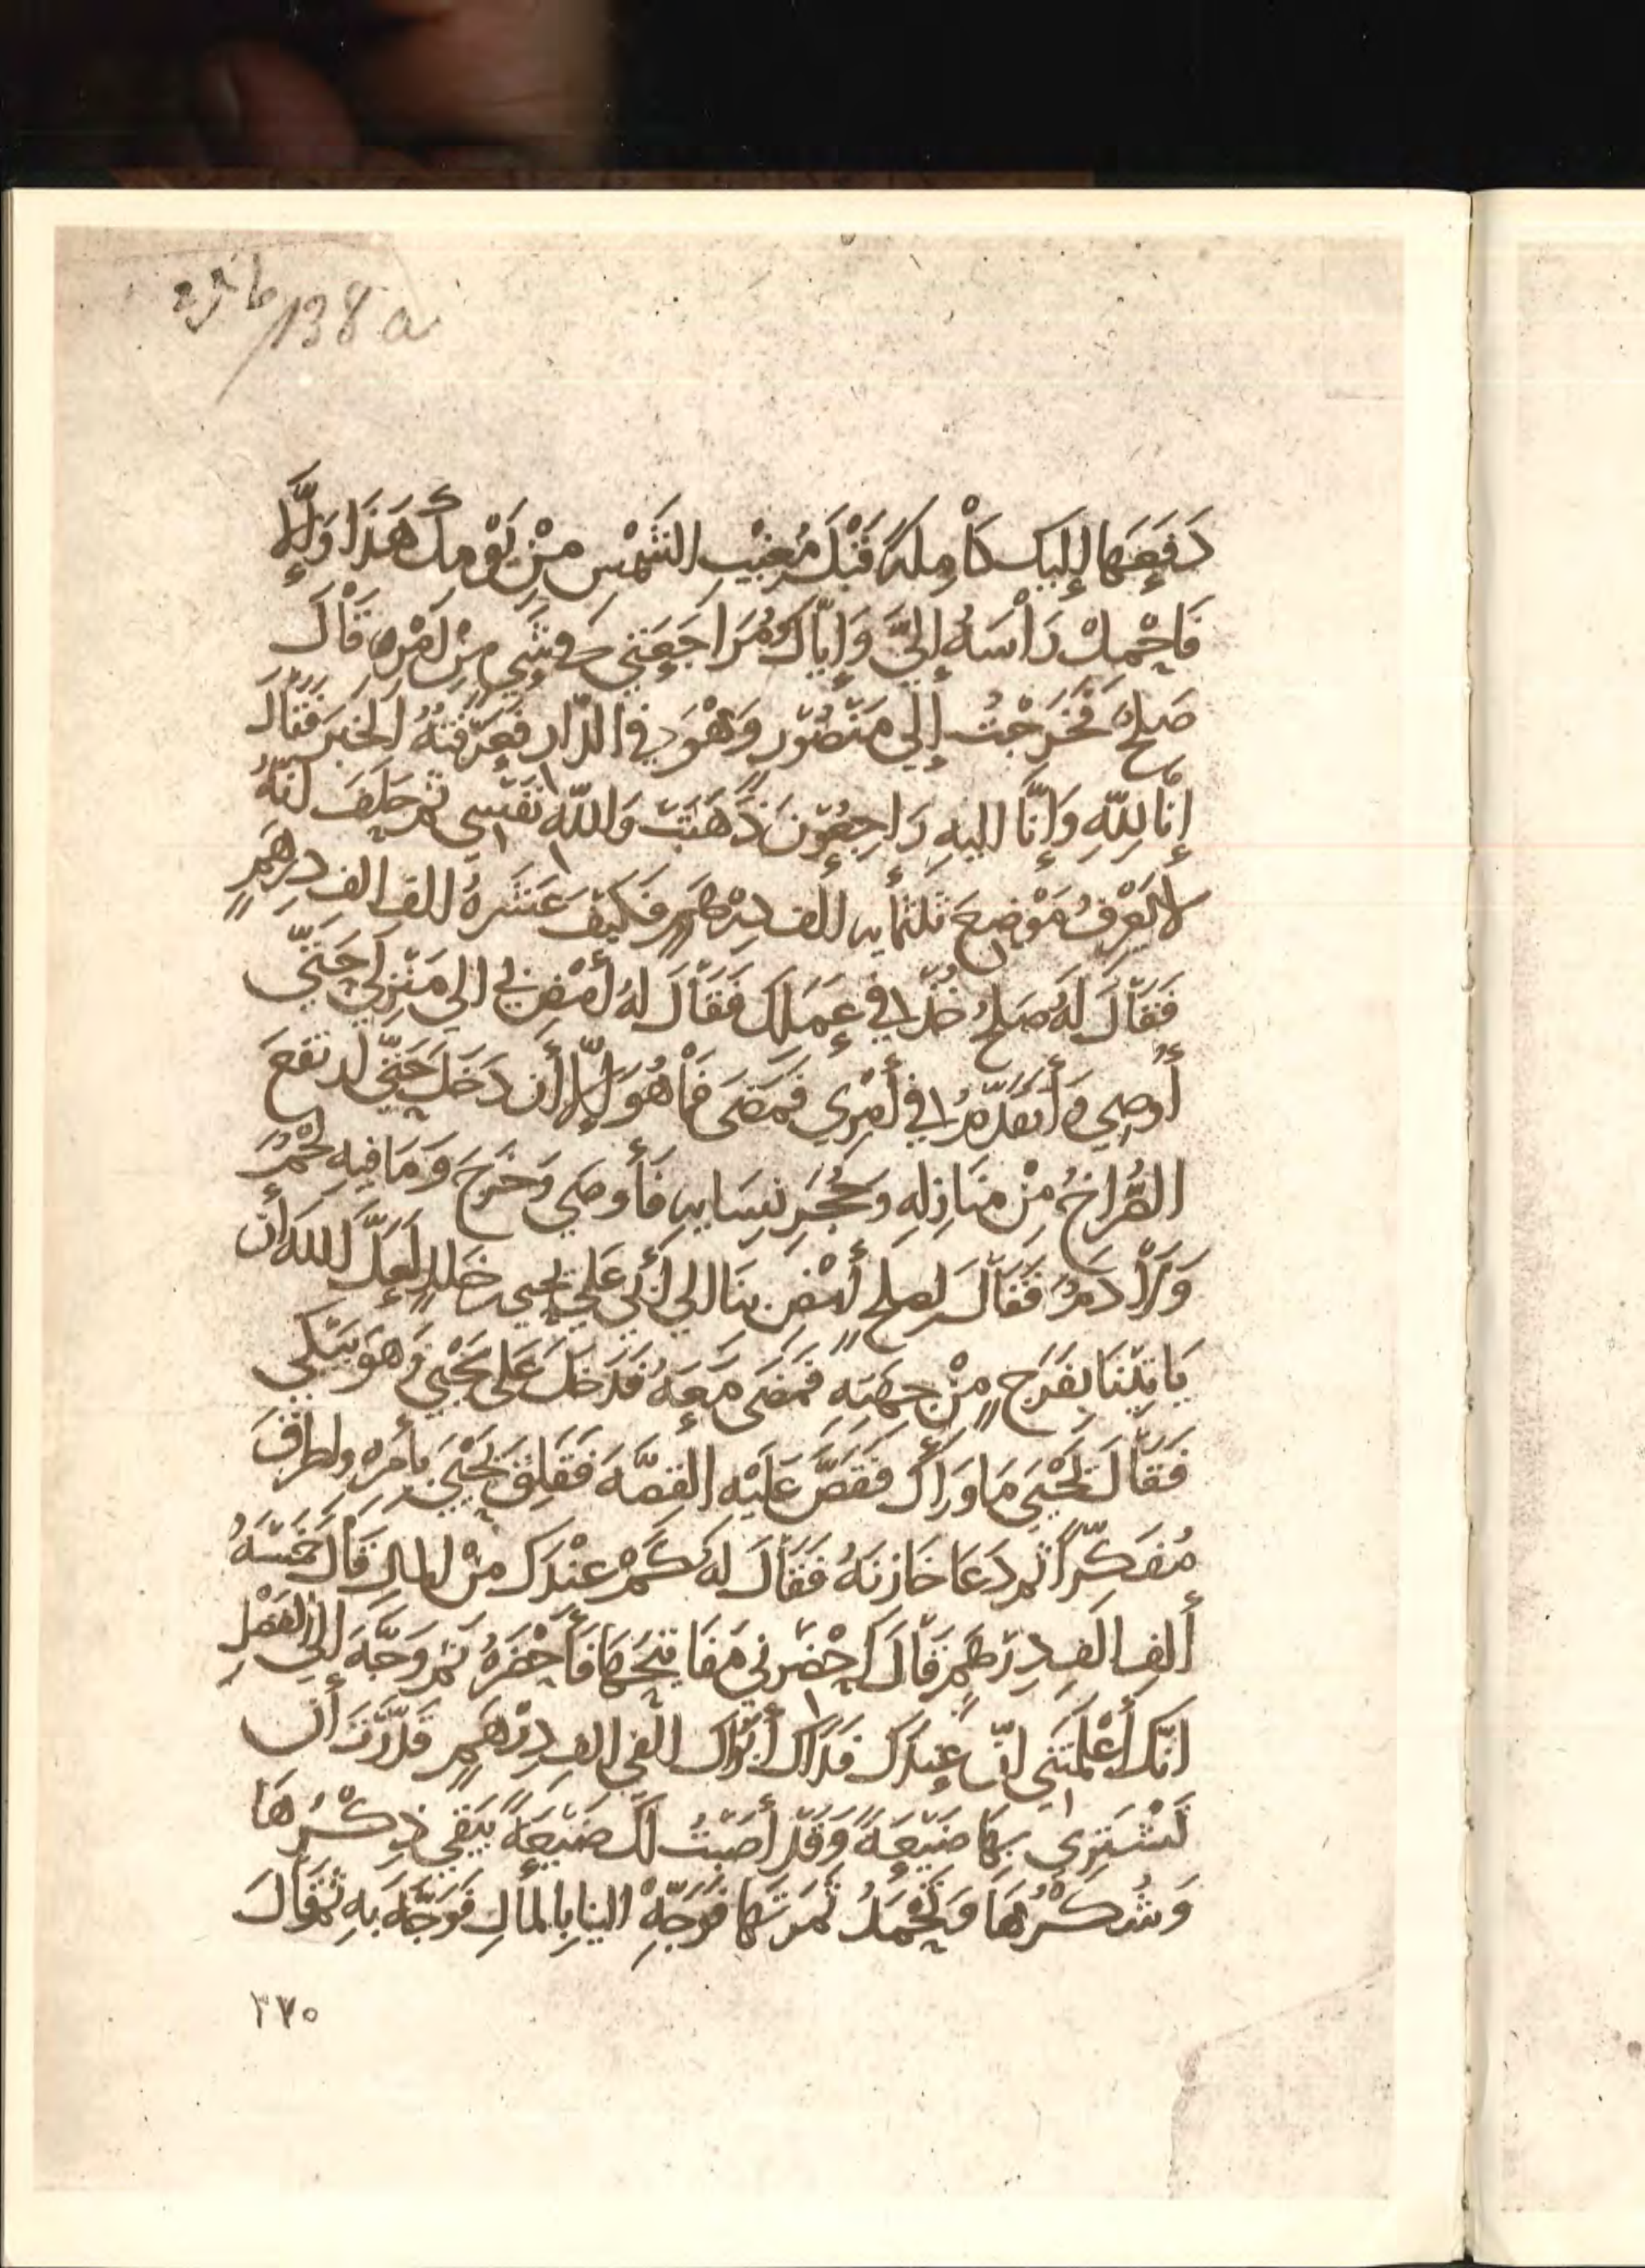 138a
دَفَعَهَا إِلَيكَ كَاْمِلَةً قَبْلَ مُغِيْبِ الشَّمْسِ مِنْ يَوْمِكَ هَذَا وَإِلَّا
فَاحْمِلْ رَأْسَهُ إِلَيَّ وَإِيَّاكَ وَمُرَاجَعَتِي فِي شَيءٍ مِنْ أَمْرِهِ قَاْلَ
صَلِحٌ فَخَرَجْتُ إِلَى مَنْصُوْرٍ وَهْوَ فِي الدَّارِ فَعَرَّفْتُهُ الخَبَرَ فَقَالَ
إِنَّا لِلَّهِ وَإِنَّا إِلَيهِ رَاجِعُوْنَ ذَهَبَتْ وَاللَّهِ نَفْسِي ثم حَلَفَ أنَّهُ
لا يَعْرِفُ مَوْضِعَ ثلثمأيه ألف دِرْهَمٍ فَكَيْفَ عَشَرَةُ ألف الف دِرهَمٍ
فَقَاْلَ لَهُ صَلِحٌ خُذْ فِي عَمَلِكَ فَقَاْلَ لَهُ أمْضِ بي الى مَنْزِلِي حَتَّى
أُوصِي وَأَتقَدَّمُ فِي أَمْرِي فَمَضَى فَمْا هُوَ إِلَّا أَن دَخَلَ حَتَّى ارتفعَ
الصُّرَاخُ مِنْ مَنَازِلِهِ وَحُجَرِ نِسَايِهِ فَأَوصَى وَخَرَجَ وَمَا فِيهِ لَحْمٌ
وَلَاْ دَمٌ فَقَاْلَ لِصلحٍ أمْضِ بِنَا إلى أَبِي عَلِي يَحيى خَلدٍ لَعَلَّ اللهَ أَن
يَاتِيْنَا بِفَرَجٍ مِنْ جِهَتِهِ فَمَضَى مَعَهُ فَدَخَلَ عَلَى يَحْيَى وَهُوَ يَبْكِي
فَقَاْلَ يَحْيَى مَا وَرَأَكَ فَقَصَّ عَلَيْهِ القِصَّهَ فَقَلِقَ يَحْيَى بِأَمْرِهِ واطرَقَ
مُفَكِّراً ثم دَعَا خَازِنَهُ فَقَاْلَ لهُ كَمْ عِنْدَكَ مِنْ المالِ قَاْلَ خَمْسَهُ
أَلفِ الفِ دِرْهَمٍ قَاْلَ احْضِرنِي مَفَاتِيحَهَا فَأَحْضَرَهُ ثُمَّ وَجَّهَ إِلى الفَضْلِ
انّكَ أَعْلَمْتَنِي انّ عِنْدَكَ فَدَاكَ أَبُوْكَ الفي الفِ دِرْهَمٍ قَدَّرْتَ أَن
تَشْتَرِى بِهَا ضَيْعَةً وَقَدْ أَصَبْتُ لَكَ ضَيْعَةً يَبْقَى ذِكْرُهَا
وَشُكْرُهَا وَتَحْمَدُ ثَمَرَتَهَا فَوَجِّهْ الينا بِالمَاْلِ فَوَجَّهَ بِهِ ثُمَّ قَاْلَ
٢٧٥